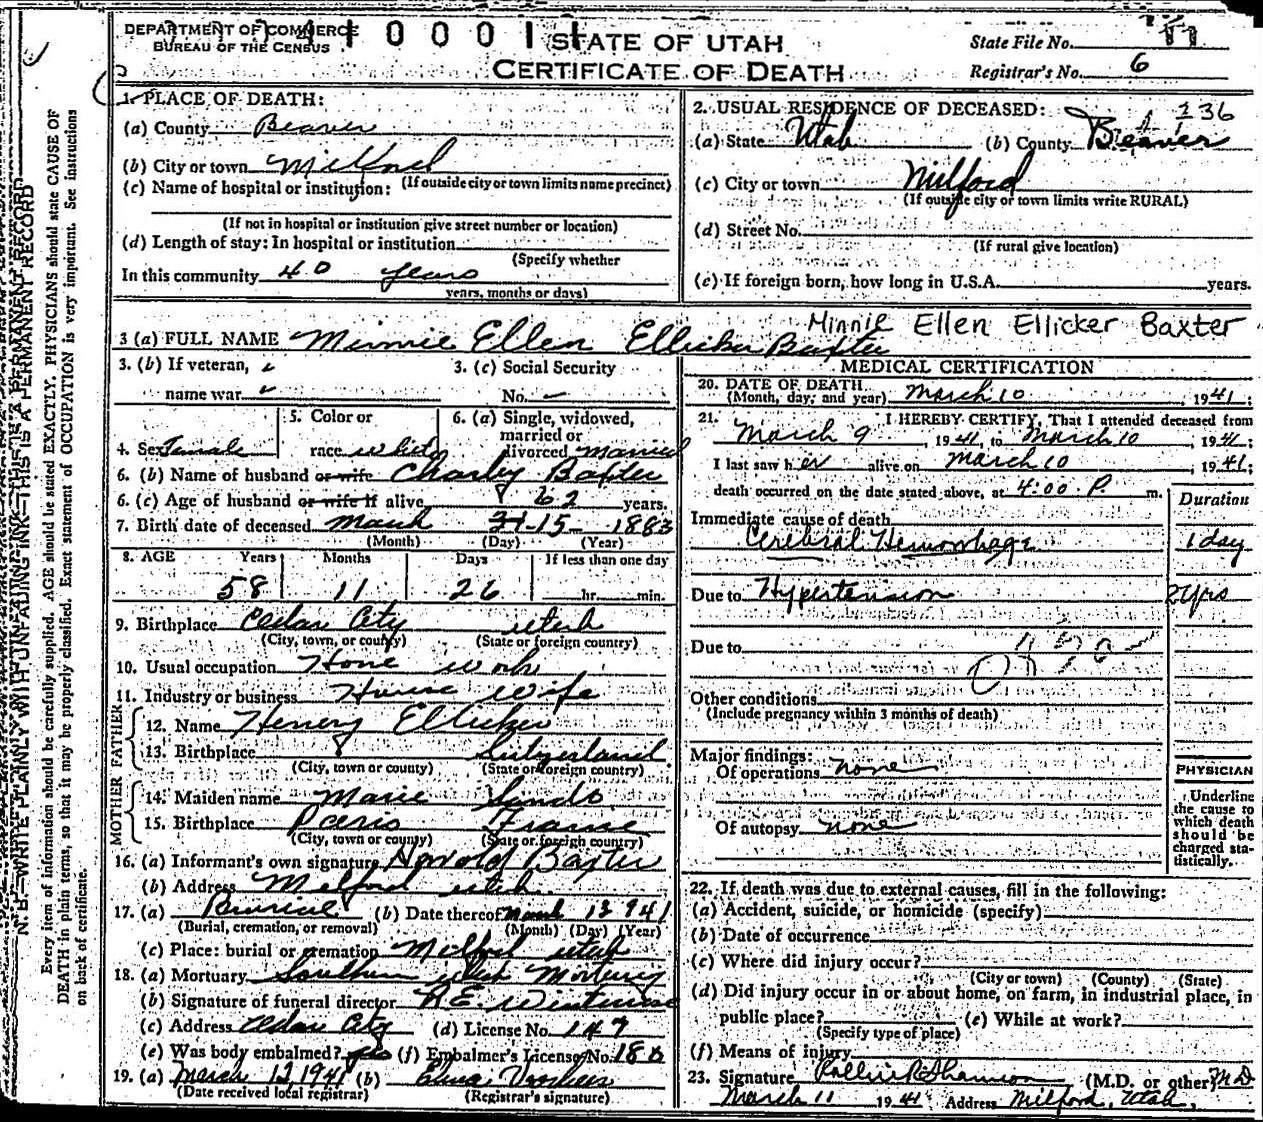 DEPARTMENT OF COMMERCE
BUREAU OF THE CENSUS
STATE OF UTAH
CERTIFICATE OF DEATH
State File No.
Registrar's No. 6
1. PLACE OF DEATH:
(a) County Beaver
(b) City or town Milford
(If outside city or town limits name precinct)
(c) Name of hospital or institution:
(If not in hospital or institution give street number or location)
(d) Length of stay: In hospital or institution
(Specify whether
In this community 40 years
years, months or days)
2. USUAL RESIDENCE OF DECEASED: 136
(a) State Utah (b) County Beaver
(c) City or town Milford
(If outside city or town limits write RURAL)
(d) Street No.
(If rural give location)
(e) If foreign born, how long in U.S.A. years.
3 (a) FULL NAME Minnie Ellen Ellicker Baxter
Minnie Ellen Ellicker Baxter
3. (b) If veteran,
name war.
3. (c) Social Security
No.
4. Sex Female
5. Color or
race white
6. (a) Single, widowed,
married or
divorced married
6. (b) Name of husband or wife Charley Baxter
6. (c) Age of husband or wife if alive 62 years.
7. Birth date of deceased March 15 1883
(Month) (Day) (Year)
8. AGE Years Months Days If less than one day
58 11 26 hr. min.
9. Birthplace Cedar City utah
(City, town, or county) (State or foreign country)
10. Usual occupation Home work
11. Industry or business House wife
FATHER
12. Name Henery Ellicker
13. Birthplace Switzerland
(City, town or county) (State or foreign country)
MOTHER
14. Maiden name Marie
15. Birthplace Paris France
(City, town or county) (State or foreign country)
16. (a) Informant's own signature Harold Baxter
(b) Address Milford utah
17. (a) Burrial (b) Date thereof March 13 941
(Burial, cremation, or removal) (Month) (Day) (Year)
(c) Place: burial or cremation Milford utah
18. (a) Mortuary Southern utah Mortuary
(b) Signature of funeral director R.E.
(c) Address Cedar City (d) License No. 147
(e) Was body embalmed? yes (f) Embalmer's License No. 186
19. (a) March 12, 1941 (b) Voorhees
(Date received local registrar) (Registrar's signature)
MEDICAL CERTIFICATION
20. DATE OF DEATH
(Month, day, and year) March 10, 1941;
21. I HEREBY CERTIFY, That I attended deceased from
March 9, 1941, to March 10, 1941;
I last saw her alive on March 10, 1941;
death occurred on the date stated above, at 4:00 P. m.
Duration
Immediate cause of death
Cerebral Hemorrhage 1 day
Due to Hypertension 2 yrs
Due to
Other conditions
(Include pregnancy within 3 months of death)
Major findings:
Of operations none
Of autopsy none
PHYSICIAN
Underline
the cause to
which death
should be
charged sta-
tistically.
22. If death was due to external causes, fill in the following:
(a) Accident, suicide, or homicide (specify)
(b) Date of occurrence
(c) Where did injury occur?
(City or town) (County) (State)
(d) Did injury occur in or about home, on farm, in industrial place, in
public place? (e) While at work?
(Specify type of place)
(f) Means of injury
23. Signature (M.D. or other) M.D.
March 11 1941 Address Milford, Utah,
N. B.—WRITE PLAINLY WITH UNFADING INK—THIS IS A PERMANENT RECORD
Every item of information should be carefully supplied. AGE should be stated EXACTLY. PHYSICIANS should state CAUSE OF
DEATH in plain terms, so that it may be properly classified. Exact statement of OCCUPATION is very important. See instructions
on back of certificate.